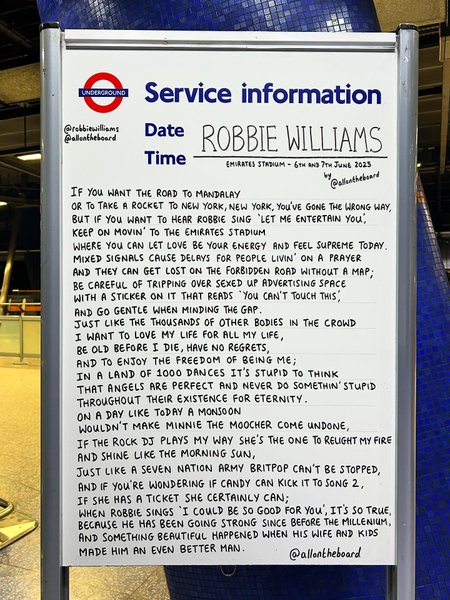 UNDERGROUND
Service information
@robbiewilliams
@allontheboard
Date
Time
ROBBIE WILLIAMS
EMIRATES STADIUM - 6TH AND 7TH JUNE 2023
by @allontheboard
IF YOU WANT THE ROAD TO MANDALAY
OR TO TAKE A ROCKET TO NEW YORK, NEW YORK, YOU'VE GONE THE WRONG WAY,
BUT IF YOU WANT TO HEAR ROBBIE SING 'LET ME ENTERTAIN YOU',
KEEP ON MOVIN' TO THE EMIRATES STADIUM
WHERE YOU CAN LET LOVE BE YOUR ENERGY AND FEEL SUPREME TODAY.
MIXED SIGNALS CAUSE DELAYS FOR PEOPLE LIVIN' ON A PRAYER
AND THEY CAN GET LOST ON THE FORBIDDEN ROAD WITHOUT A MAP;
BE CAREFUL OF TRIPPING OVER SEXED UP ADVERTISING SPACE
WITH A STICKER ON IT THAT READS 'YOU CAN'T TOUCH THIS',
AND GO GENTLE WHEN MINDING THE GAP.
JUST LIKE THE THOUSANDS OF OTHER BODIES IN THE CROWD
I WANT TO LOVE MY LIFE FOR ALL MY LIFE,
BE OLD BEFORE I DIE, HAVE NO REGRETS,
AND TO ENJOY THE FREEDOM OF BEING ME;
IN A LAND OF 1000 DANCES IT'S STUPID TO THINK
THAT ANGELS ARE PERFECT AND NEVER DO SOMETHIN' STUPID
THROUGHOUT THEIR EXISTENCE FOR ETERNITY.
ON A DAY LIKE TODAY A MONSOON
WOULDN'T MAKE MINNIE THE MOOCHER COME UNDONE,
IF THE ROCK DJ PLAYS MY WAY SHE'S THE ONE TO RELIGHT MY FIRE
AND SHINE LIKE THE MORNING SUN,
JUST LIKE A SEVEN NATION ARMY BRITPOP CAN'T BE STOPPED,
AND IF YOU'RE WONDERING IF CANDY CAN KICK IT TO SONG 2,
IF SHE HAS A TICKET SHE CERTAINLY CAN;
WHEN ROBBIE SINGS 'I COULD BE SO GOOD FOR YOU', IT'S SO TRUE,
BECAUSE HE HAS BEEN GOING STRONG SINCE BEFORE THE MILLENIUM,
AND SOMETHING BEAUTIFUL HAPPENED WHEN HIS WIFE AND KIDS
MADE HIM AN EVEN BETTER MAN.
@allontheboard